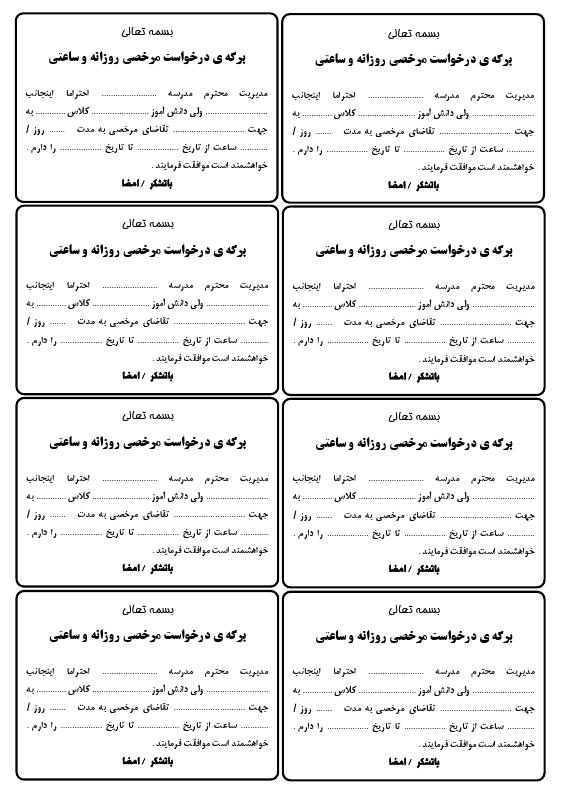 بسمه تعالی
برگه ی درخواست مرخصی روزانه و ساعتی
مدیریت محترم مدرسه ........................ احتراما اینجانب
........................... ولی دانش آموز ......................... کلاس ............. به
جهت ............................... تقاضای مرخصی به مدت ....... روز /
............ ساعت از تاریخ .................. تا تاریخ .................. را دارم .
خواهشمند است موافقت فرمایند .
باتشکر / امضا
بسمه تعالی
برگه ی درخواست مرخصی روزانه و ساعتی
مدیریت محترم مدرسه ........................ احتراما اینجانب
........................... ولی دانش آموز ......................... کلاس ............. به
جهت ............................... تقاضای مرخصی به مدت ....... روز /
............ ساعت از تاریخ .................. تا تاریخ .................. را دارم .
خواهشمند است موافقت فرمایند .
باتشکر / امضا
بسمه تعالی
برگه ی درخواست مرخصی روزانه و ساعتی
مدیریت محترم مدرسه ........................ احتراما اینجانب
........................... ولی دانش آموز ......................... کلاس ............. به
جهت ............................... تقاضای مرخصی به مدت ....... روز /
............ ساعت از تاریخ .................. تا تاریخ .................. را دارم .
خواهشمند است موافقت فرمایند .
باتشکر / امضا
بسمه تعالی
برگه ی درخواست مرخصی روزانه و ساعتی
مدیریت محترم مدرسه ........................ احتراما اینجانب
........................... ولی دانش آموز ......................... کلاس ............. به
جهت ............................... تقاضای مرخصی به مدت ....... روز /
............ ساعت از تاریخ .................. تا تاریخ .................. را دارم .
خواهشمند است موافقت فرمایند .
باتشکر / امضا
بسمه تعالی
برگه ی درخواست مرخصی روزانه و ساعتی
مدیریت محترم مدرسه ........................ احتراما اینجانب
........................... ولی دانش آموز ......................... کلاس ............. به
جهت ............................... تقاضای مرخصی به مدت ....... روز /
............ ساعت از تاریخ .................. تا تاریخ .................. را دارم .
خواهشمند است موافقت فرمایند .
باتشکر / امضا
بسمه تعالی
برگه ی درخواست مرخصی روزانه و ساعتی
مدیریت محترم مدرسه ........................ احتراما اینجانب
........................... ولی دانش آموز ......................... کلاس ............. به
جهت ............................... تقاضای مرخصی به مدت ....... روز /
............ ساعت از تاریخ .................. تا تاریخ .................. را دارم .
خواهشمند است موافقت فرمایند .
باتشکر / امضا
بسمه تعالی
برگه ی درخواست مرخصی روزانه و ساعتی
مدیریت محترم مدرسه ........................ احتراما اینجانب
........................... ولی دانش آموز ......................... کلاس ............. به
جهت ............................... تقاضای مرخصی به مدت ....... روز /
............ ساعت از تاریخ .................. تا تاریخ .................. را دارم .
خواهشمند است موافقت فرمایند .
باتشکر / امضا
بسمه تعالی
برگه ی درخواست مرخصی روزانه و ساعتی
مدیریت محترم مدرسه ........................ احتراما اینجانب
........................... ولی دانش آموز ......................... کلاس ............. به
جهت ............................... تقاضای مرخصی به مدت ....... روز /
............ ساعت از تاریخ .................. تا تاریخ .................. را دارم .
خواهشمند است موافقت فرمایند .
باتشکر / امضا